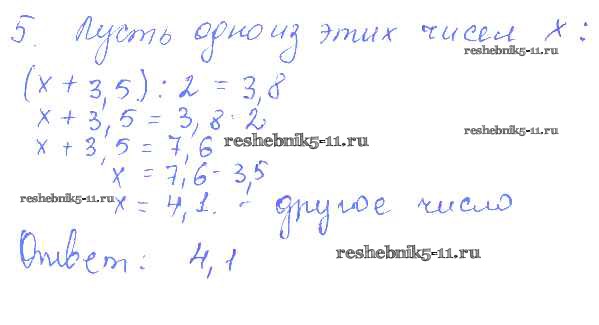 5. Пусть одно из этих чисел x:
reshebnik5-11.ru
(x + 3,5) : 2 = 3,8
x + 3,5 = 3,8 · 2
reshebnik5-11.ru
x + 3,5 = 7,6
reshebnik5-11.ru
x = 7,6 - 3,5
reshebnik5-11.ru
x = 4,1. - другое число
Ответ: 4,1
reshebnik5-11.ru